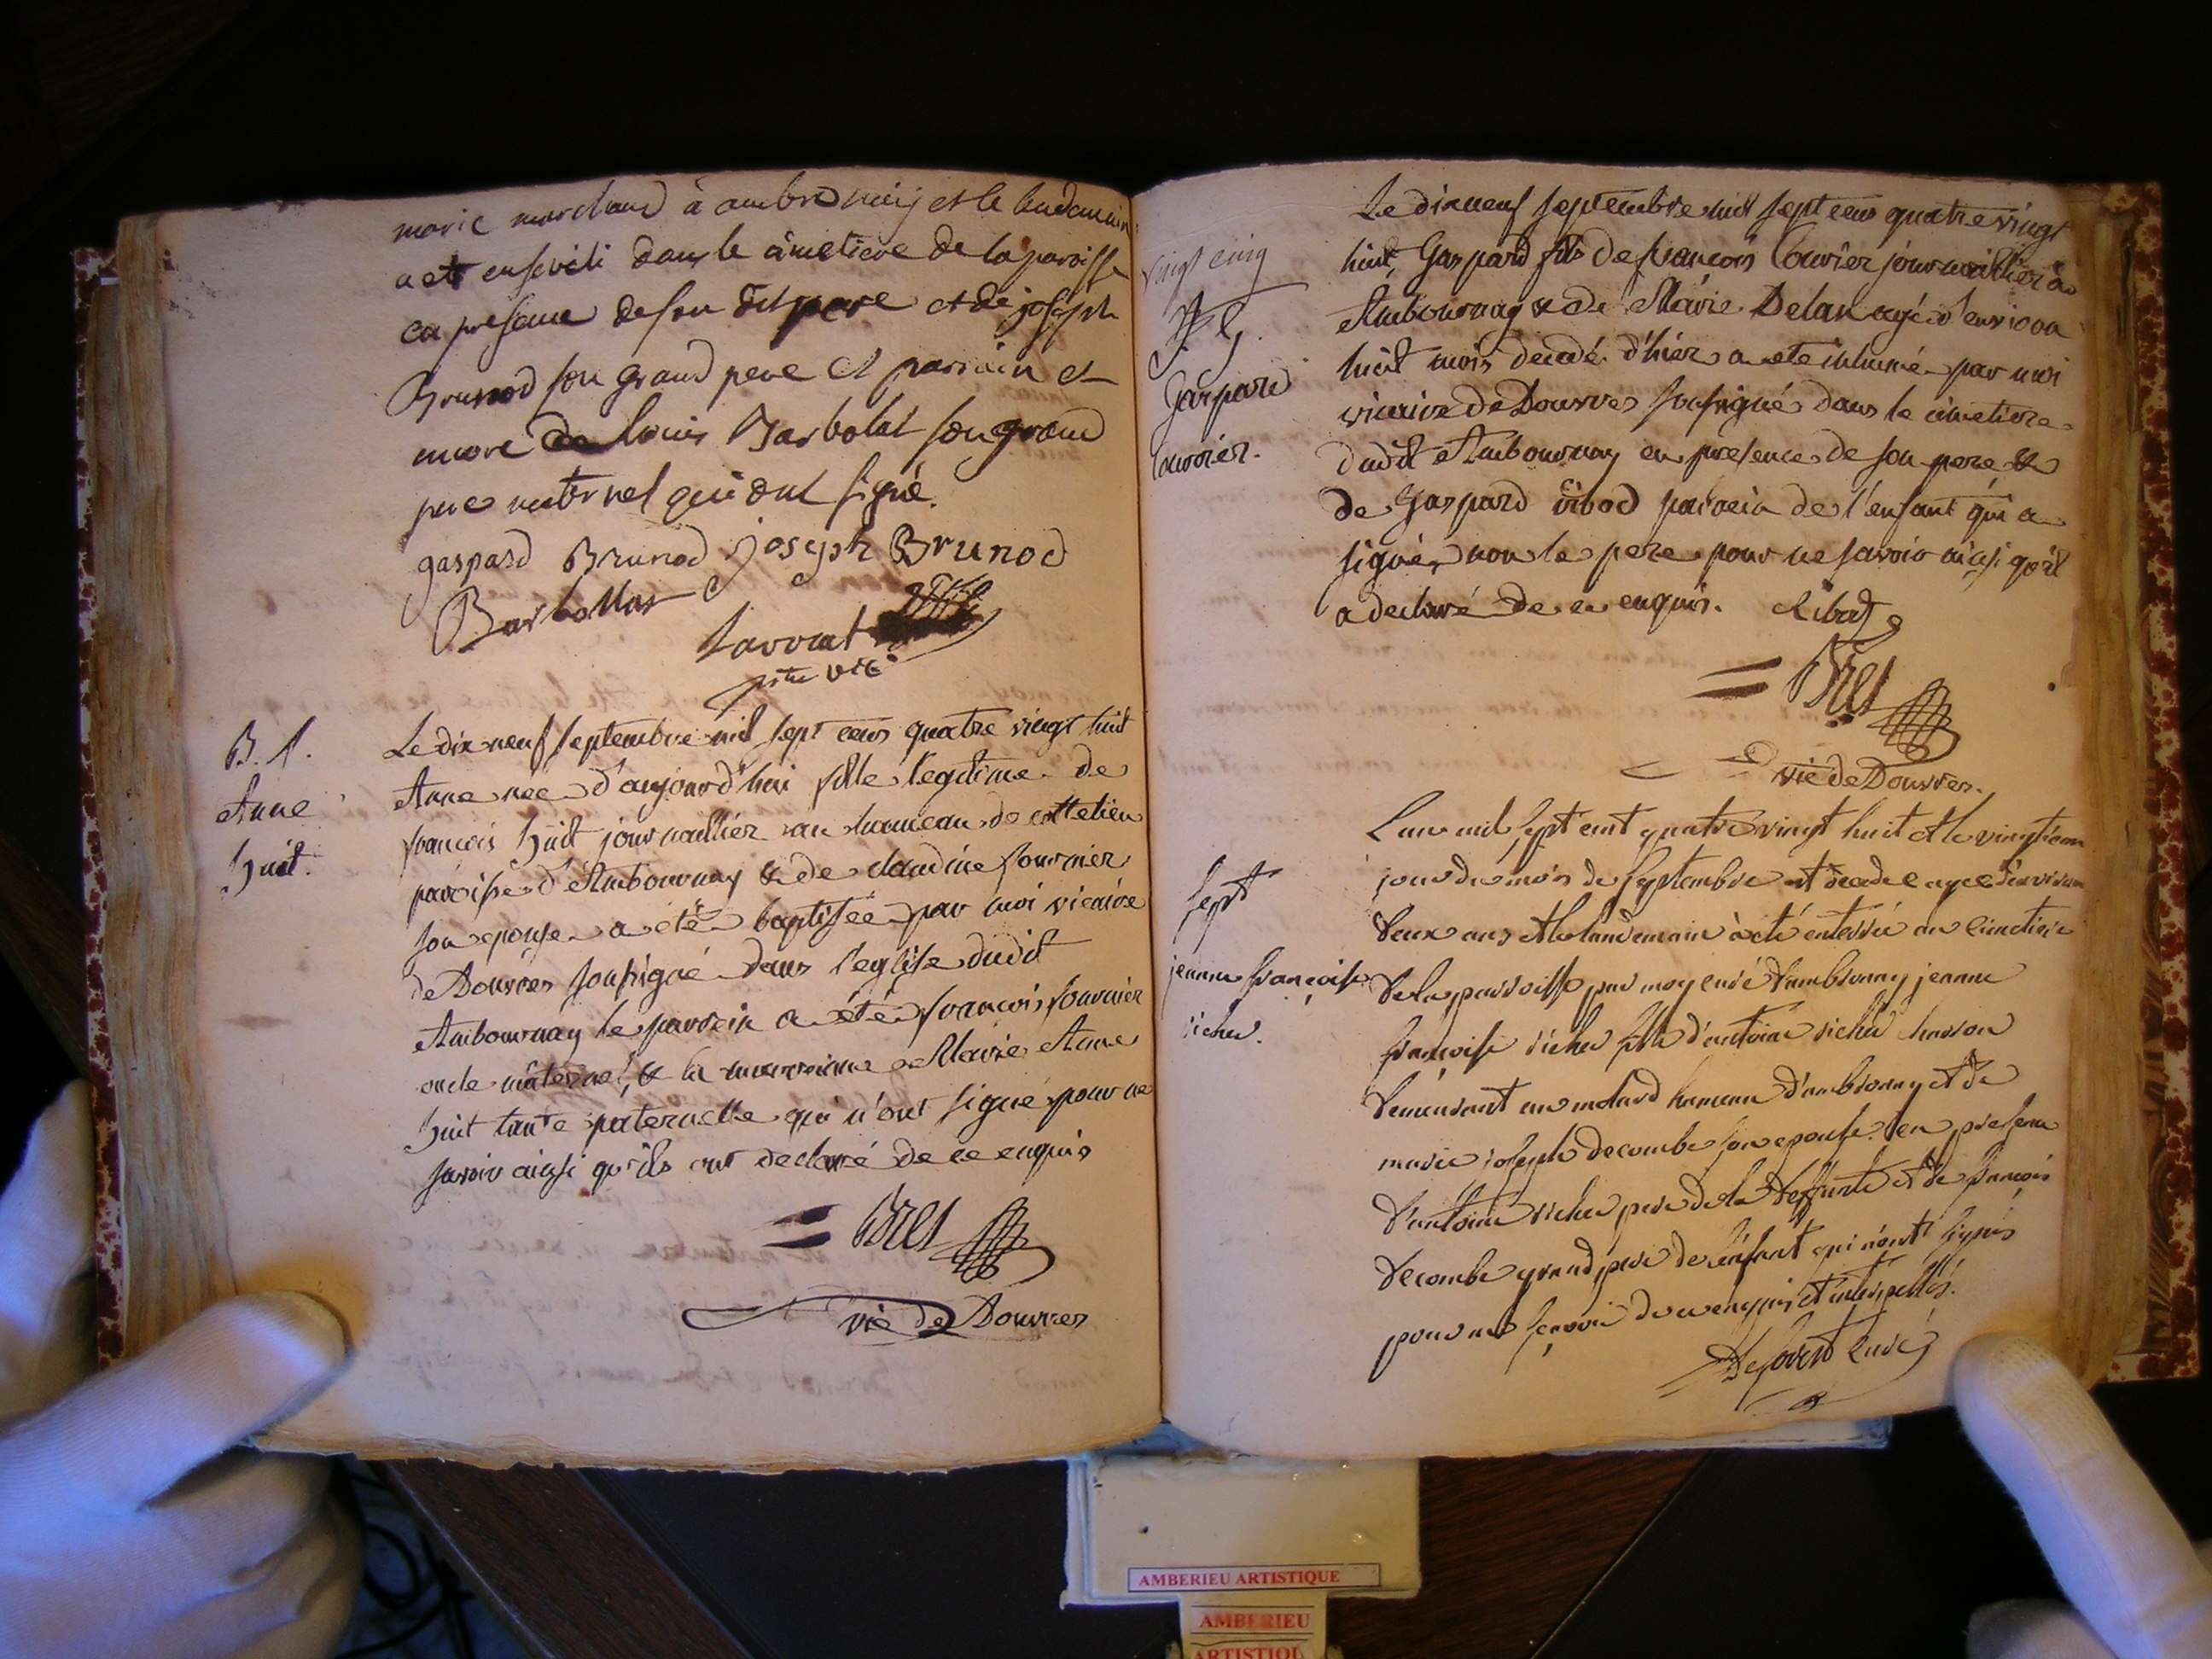 marie marchand à ambronay et le landemain
a ete enseveli dans le cimetiere de la paroisse
en presence de son dit pere et de joseph
Brunod son grand pere et parrain et
encore de louis Barbolat son grand
pere maternel qui ont signé.
gaspard Brunod joseph Brunod
Barbollat
Savorat
ptre vic
B. l.
Anne
huit.
Le dix neuf septembre mil sept cens quatre vingt huit
Anne née d'aujourd'hui fille legitime de
francois huit journaillier au hameau de cottelieu
paroisse d'Ambournay & de claudine fournier
son epouse a été baptisée par moi vicaire
de Douvres soussigné dans l'eglise dudit
Ambournay le parrein a été francois fournier
oncle maternel, & la marreine Marie Anne
huit tante paternelle qui n'ont signé pour ne
savoir ainsi qu'ils ont declaré de ce enquis
Bret
vic de Douvres
vingt cinq
Gaspard
Couvier.
Le dix neuf septembre mil sept cens quatre vingt
huit, Gaspard fils de francois Couvier journaillier à
Ambournay & de Marie Delan agé d'environ
huit mois decedé d'hier a eté inhumé par moi
vicaire de Douvres soussigné dans le cimetiere
dudit Ambournay en presence de son pere &
de Gaspard ribod parrein de l'enfant qui a
signé, non le pere pour ne savoir ainsi qu'il
a declaré de ce enquis. Ribod
Bret
vic de Douvres.
Sept
jeanne françoise
richer.
L'an mil sept cent quatre vingt huit et le vingtieme
jour du mois de septembre est decedée agée d'environ
deux ans et le landemain à eté enterrée au cimetiere
de la parroisse par moy curé d'ambronay jeanne
françoise richer fille d'antoine richer masson
demeurant au molard hameau d'ambronay et de
marie joseph decombe son epouse. en presence
d'antoine richer pere de la deffunte et de françois
decombe grand pere de l'enfant qui n'ont signés
pour ne sçavoir de ce enquis et interpellés.
curé
AMBERIEU ARTISTIQUE
AMBERIEU
ARTISTIQ